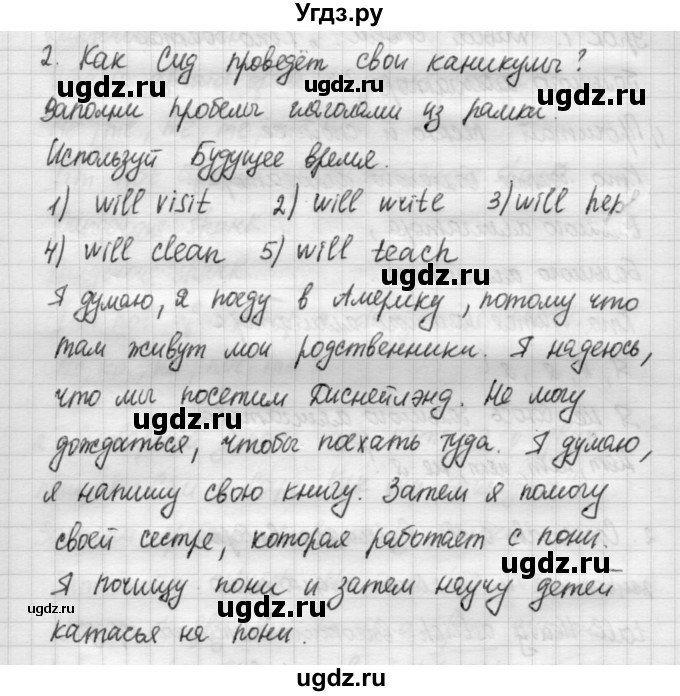 Угдз.ру
2. Как Сид проведёт свои каникулы?
Заполни пробелы глаголами из рамки.
Используй Будущее время.
1) will visit 2) will write 3) will help
4) will clean 5) will teach
Я думаю, я поеду в Америку, потому что
там живут мои родственники. Я надеюсь,
что мы посетим Диснейлэнд. Не могу
дождаться, чтобы поехать туда. Я думаю,
я напишу свою книгу. Затем я помогу
своей сестре, которая работает с пони.
Я почищу пони и затем научу детей
катасья на пони.
ugdz.ru
ugdz.ru
ugdz.ru
ugdz.ru
ugdz.ru
ugdz.ru
ugdz.ru
ugdz.ru
ugdz.ru
ugdz.ru